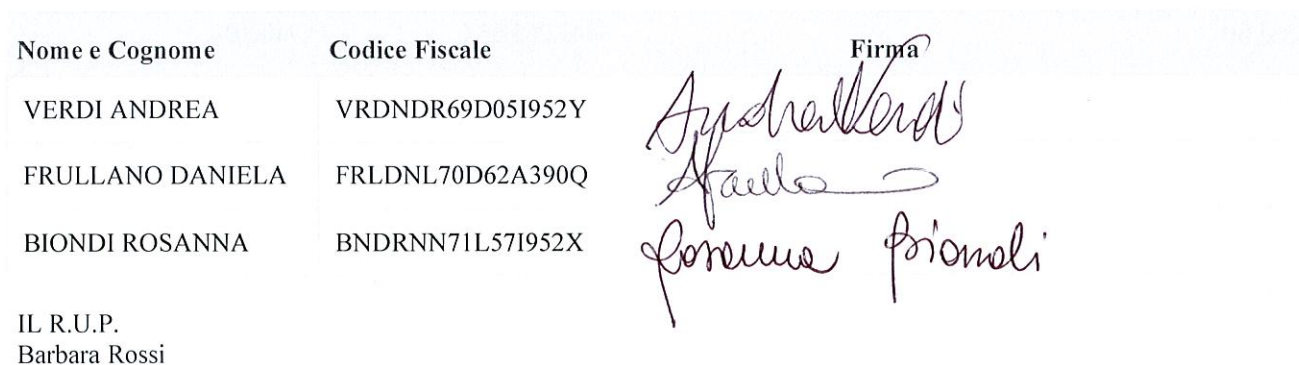 Nome e Cognome Codice Fiscale Firma
VERDI ANDREA VRDNDR69D05I952Y Andrea Verdi
FRULLANO DANIELA FRLDNL70D62A390Q
BIONDI ROSANNA BNDRNN71L57I952X Rosanna Biondi
IL R.U.P.
Barbara Rossi